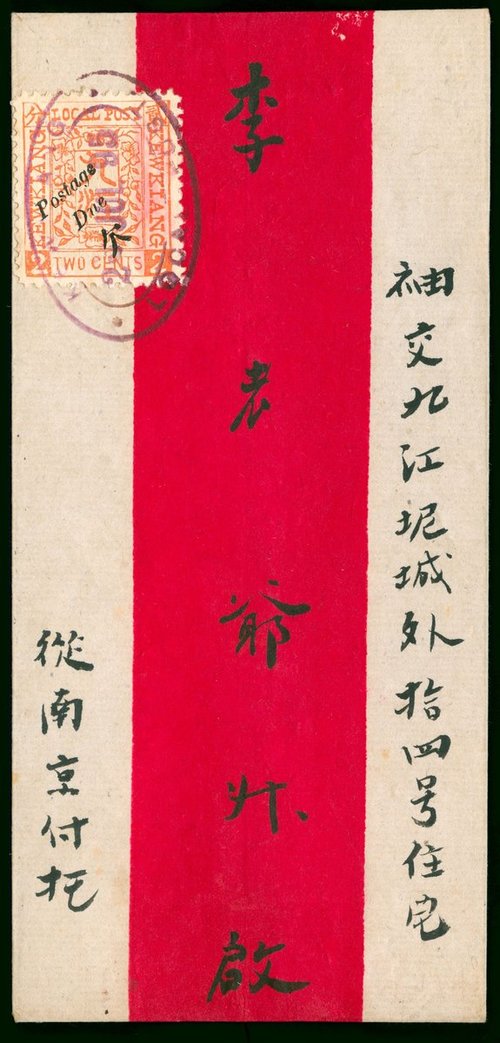 袖交九江坭城外拾四号住宅
李老爺升啟
從南京付托
LOCAL POST
KEWKIANG
KEWKIANG
Postage
Due
欠
分
TWO CENTS
2
2